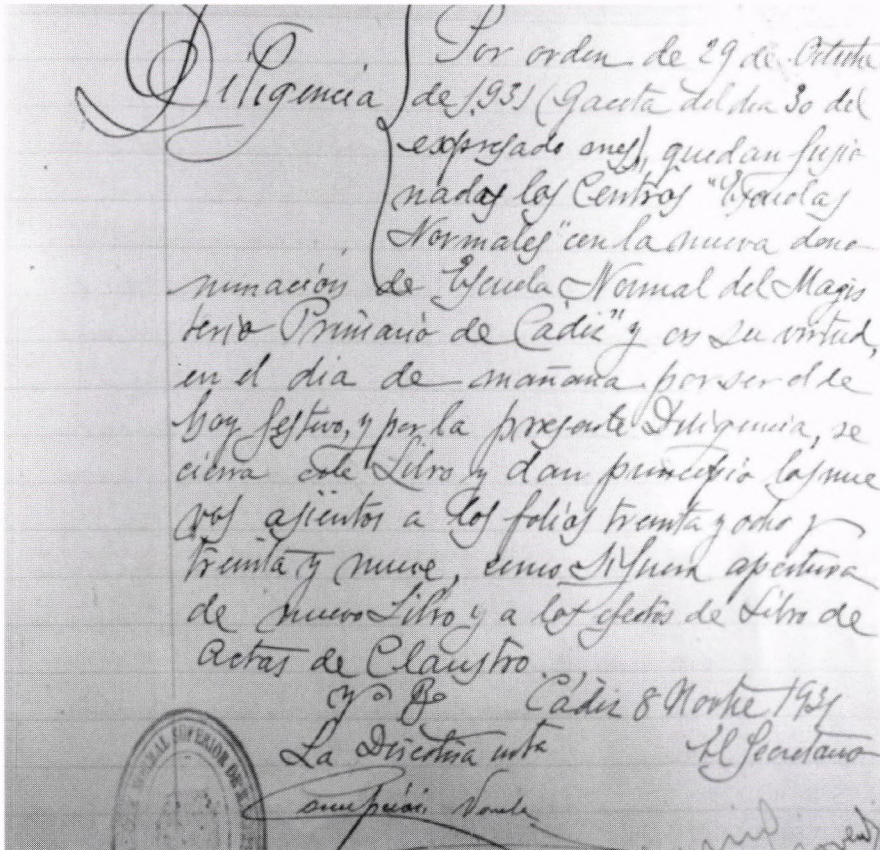 Diligencia
Por orden de 29 de Octubre
de 1931 (Gaceta del dia 30 del
expresado mes), quedan fusio
nadas los Centros "Escuelas
Normales" con la nueva deno
minación de Escuela Normal del Magis
terio Primario de Cádiz" y en su virtud,
en el dia de mañana por ser el de
hoy festivo, y por la presente Diligencia, se
cierra este Libro y dan principio los nue
vos asientos a los folios treinta y ocho y
treinta y nueve, como si fuera apertura
de nuevo Libro y a los efectos de Libro de
Actas de Claustro.
Vº Bº Cádiz 8 Novbre 1931
La Directora El Secretario
NORMAL SUPERIOR DE